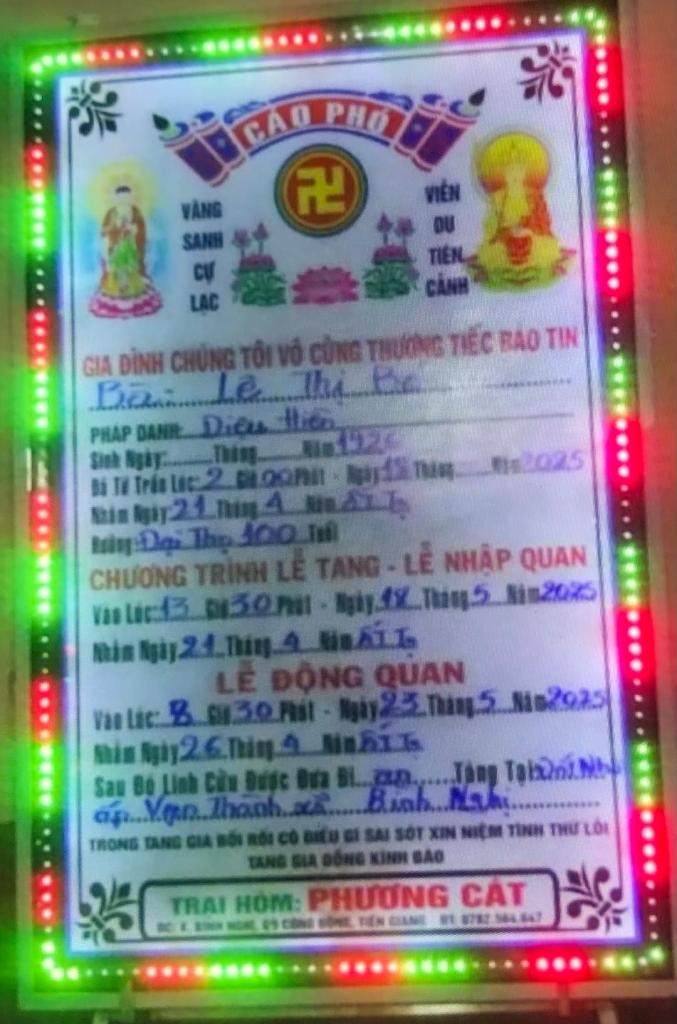 CÁO PHÓ
VÃNG
SANH
CỰ
LẠC
VIÊN
DU
TIÊN
CẢNH
GIA ĐÌNH CHÚNG TÔI VÔ CÙNG THƯƠNG TIẾC BÁO TIN
Bà: Lê Thị Bé
PHÁP DANH: Diệu Hiền
Sinh Ngày: Tháng Năm 1926
Đã Từ Trần Lúc: 2 Giờ 00 Phút - Ngày 18 Tháng Năm 2025
Nhằm Ngày 21 Tháng 4 Năm ẤT Tỵ
Hưởng Đại Thọ 100 Tuổi
CHƯƠNG TRÌNH LỄ TANG - LỄ NHẬP QUAN
Vào Lúc: 13 Giờ 30 Phút - Ngày 18 Tháng 5 Năm 2025
Nhằm Ngày 21 Tháng 4 Năm ẤT Tỵ
LỄ ĐỘNG QUAN
Vào Lúc: 8 Giờ 30 Phút - Ngày 23 Tháng 5 Năm 2025
Nhằm Ngày 26 Tháng 4 Năm ẤT Tỵ
Sau Đó Linh Cửu Được Đưa Đi an Táng Tại: Đất Nhà
ấp Vạn Thành xã Bình Nghị
TRONG TANG GIA BỐI RỐI CÓ ĐIỀU GÌ SAI SÓT XIN NIỆM TÌNH THỨ LỖI
TANG GIA ĐỒNG KÍNH BÁO
TRẠI HÒM: PHƯƠNG CÁT
ĐC: X. BÌNH NGHỊ, GÒ CÔNG ĐÔNG, TIỀN GIANG ĐT: 0782.564.647